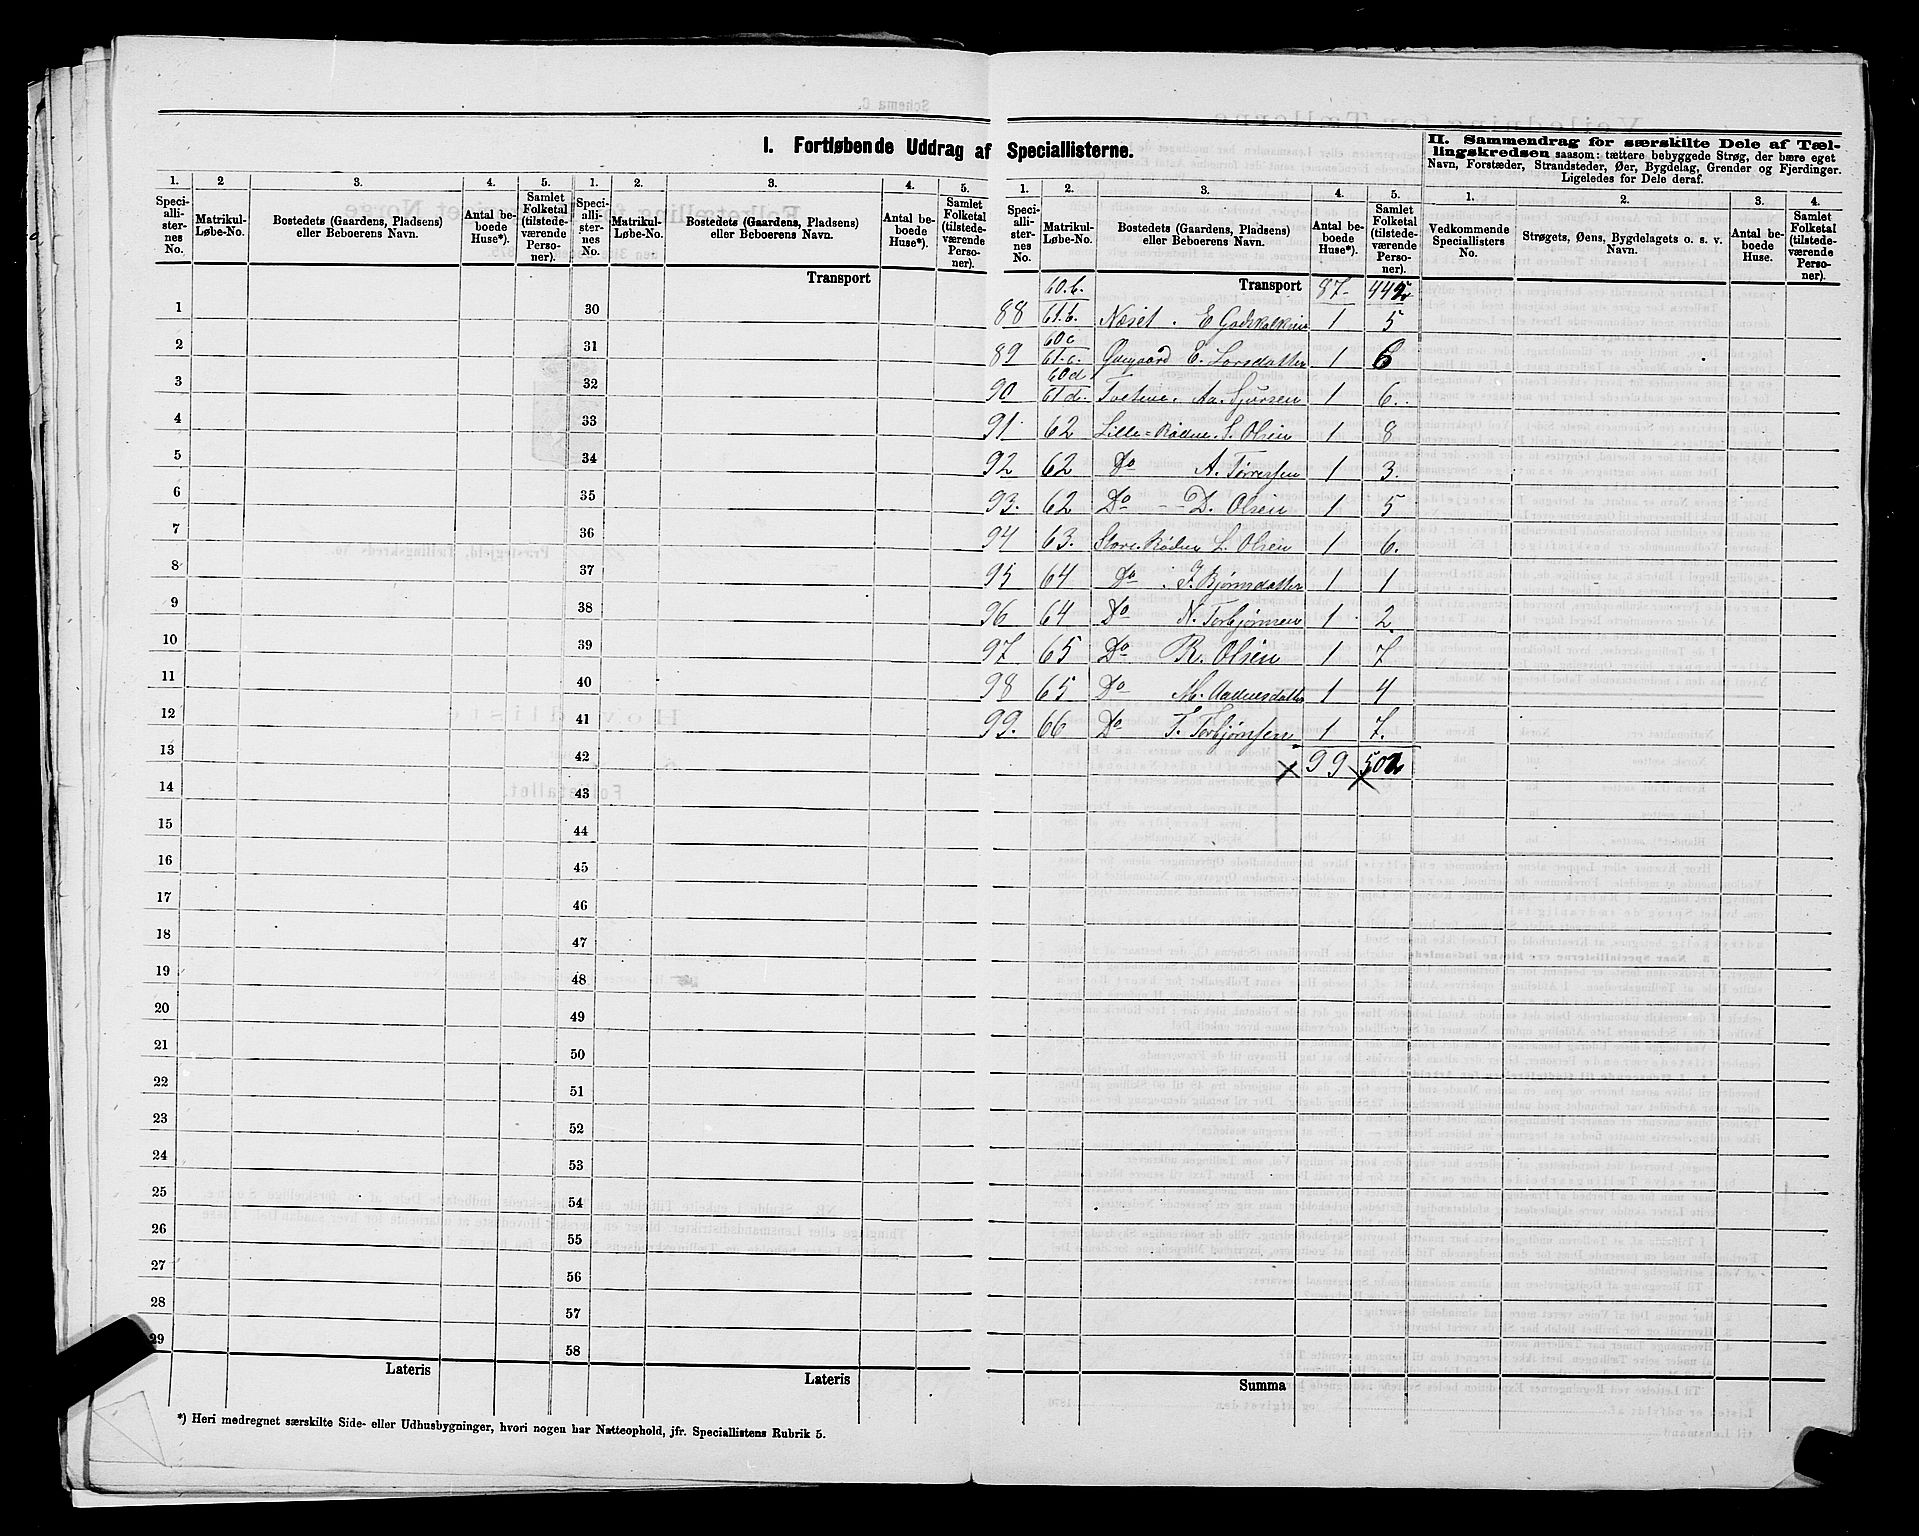 I. Fortløbende Uddrag af Speciallisterne.
II. Sammendrag for særskilte Dele af Tællingskredsen saasom: tættere bebyggede Strøg, der bære eget
Navn, Forstæder, Strandsteder, Øer, Bygdelag, Grender og Fjerdinger.
Ligeledes for Dele deraf.
1. 2 3. 4. 5. 1. 2. 3. 4. 5.
Speciallisternes No. Matrikul-Løbe-No. Bostedets (Gaardens, Pladsens) eller Beboerens Navn. Antal beboede Huse*). Samlet Folketal (tilstedeværende Personer).
Speciallisternes No. Matrikul-Løbe-No. Bostedets (Gaardens, Pladsens) eller Beboerens Navn. Antal beboede Huse*). Samlet Folketal (tilstedeværende Personer).
Transport
1 30
2 31
3 32
4 33
5 34
6 35
7 36
8 37
9 38
10 39
11 40
12 41
13 42
14 43
15 44
16 45
17 46
18 47
19 48
20 49
21 50
22 51
23 52
24 53
25 54
26 55
27 56
28 57
29 58
Lateris Lateris
*) Heri medregnet særskilte Side- eller Udhusbygninger, hvori nogen har Natteophold, jfr. Speciallistens Rubrik 5.
1. 2. 3. 4. 5.
Speciallisternes No. Matrikul-Løbe-No. Bostedets (Gaardens, Pladsens) eller Beboerens Navn. Antal beboede Huse*). Samlet Folketal (tilstedeværende Personer).
1. 2. 3. 4.
Vedkommende Speciallisters No. Strøgets, Øens, Bygdelagets o. s. v. Navn. Antal beboede Huse. Samlet Folketal (tilstedeværende Personer).
Transport 87 445
88 60.b. 61.b. Næset. E 1 5
89 60c 61.c. Ødegaard E. Larsdatter 1 6
90 60d 61d. Tveterne. Aa. Sjursen 1 6.
91 62 Lille-Rødne. S. Olsen 1 8
92 62 Do A. Tørresen 1 3.
93. 62 Do D. Olsen 1 5
94 63. Store-Rødne L. Olsen 1 6.
95 64 Do I. Bjørnsdatter 1 1
96 64 Do N. Torbjørnsen 1 2
97 65 Do R. Olsen 1 7
98 65 Do M. Aadnesdatter 1 4
99. 66 Do T. Torbjørnsen 1 7.
99 502
Summa